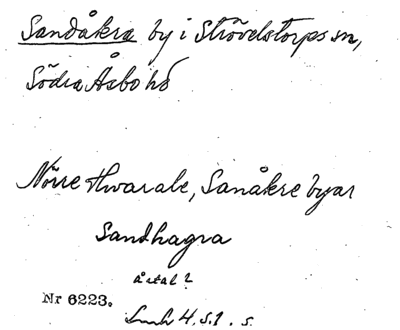 Sandåkra by i Strövelstorps sn,
Södra Åsbo hd
Nörre Hwarabe, Sanåkre byar
Sandhagra
årtal?
Nr 6223.
4. s. 1. s.